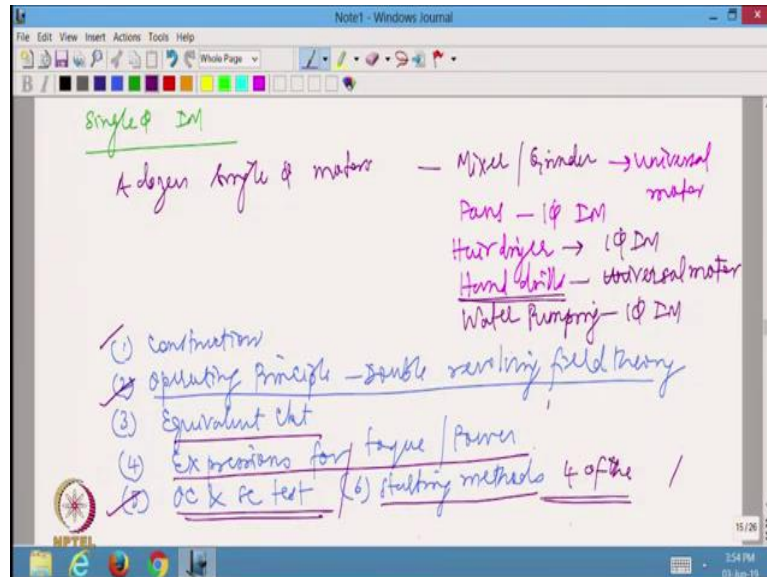 Note1 - Windows Journal
File Edit View Insert Actions Tools Help
Whole Page
B I
Single φ IM
A dozen single φ motors — Mixer / Grinder → universal motor
Fans — 1φ IM
Hair dryer → 1φ IM
Hand drills — universal motor
Water Pumping — 1φ IM
(1) Construction
(2) Operating Principle — Double revolving field theory
(3) Equivalent Ckt
(4) Expressions for torque / Power
(5) OC & SC test / (6) Starting methods 4 of the /
NPTEL
15/26
3:54 PM
03-Jun-19